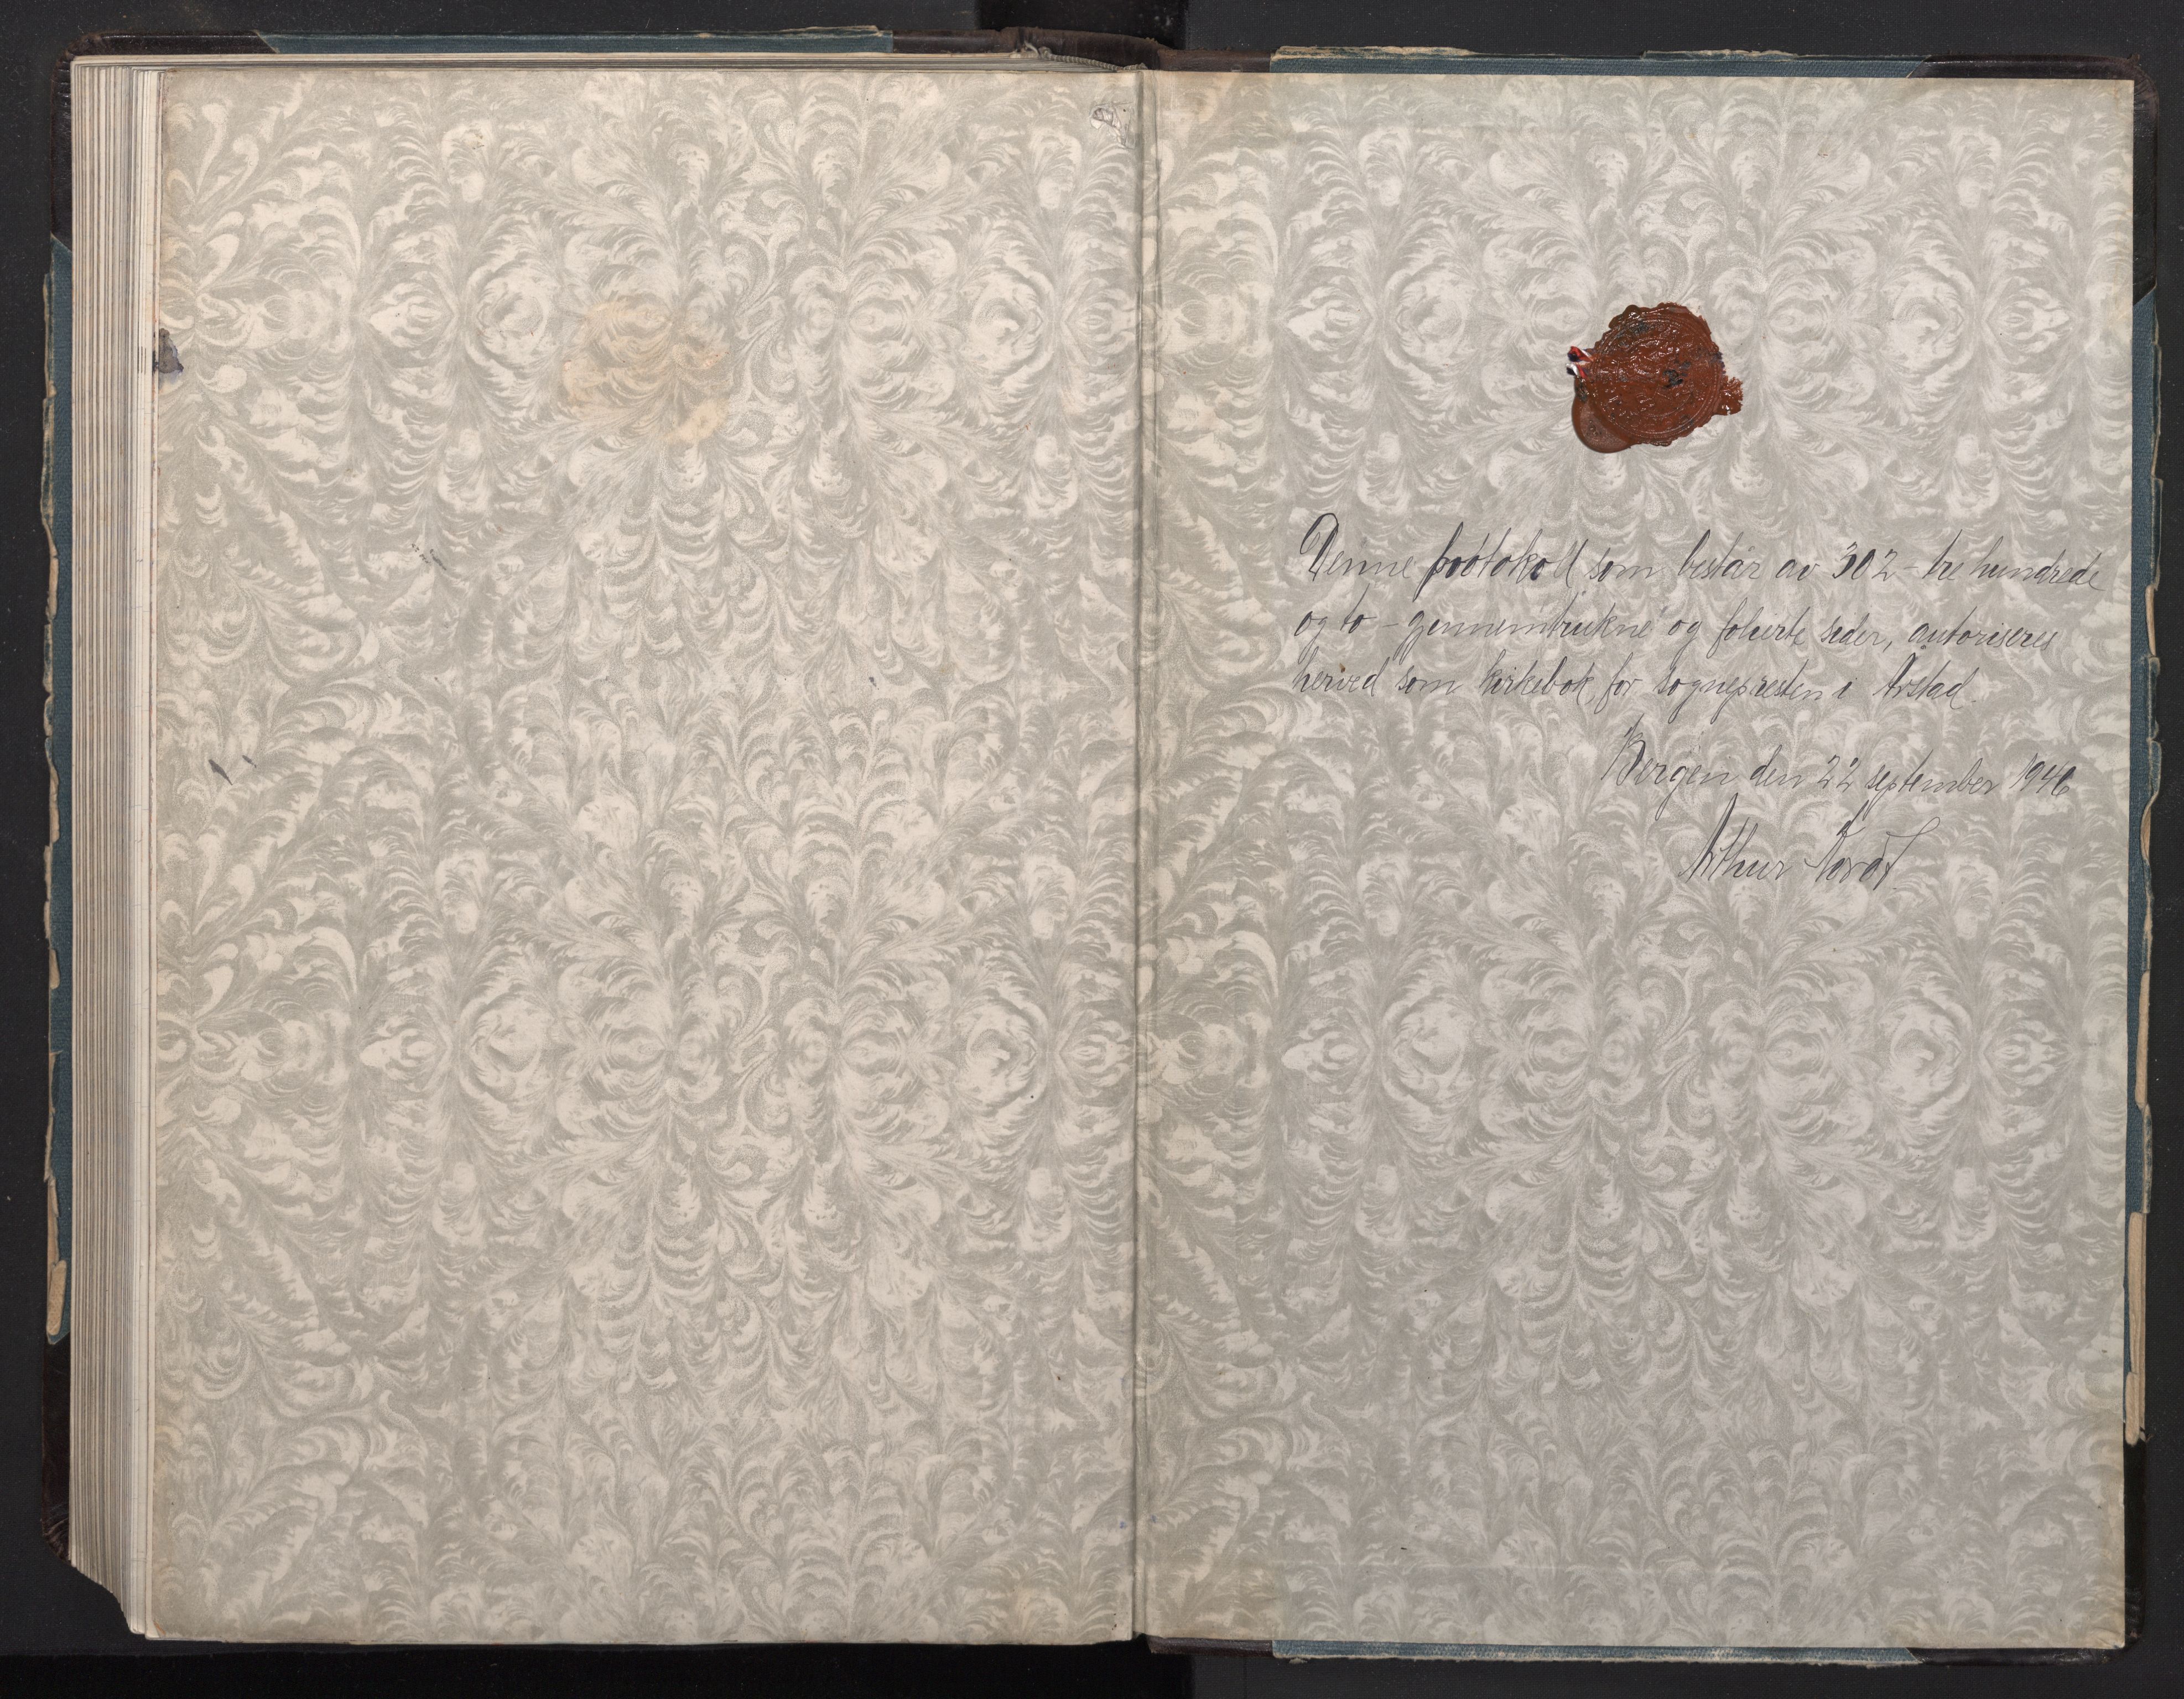 Denne protokoll som består av 302 - tre hundrede
og to - gjennemtrukne og folierte sider, autoriseres
herved som kirkebok for sognepresten i Årstad.
Bergen den 22 september 1946
Arthur